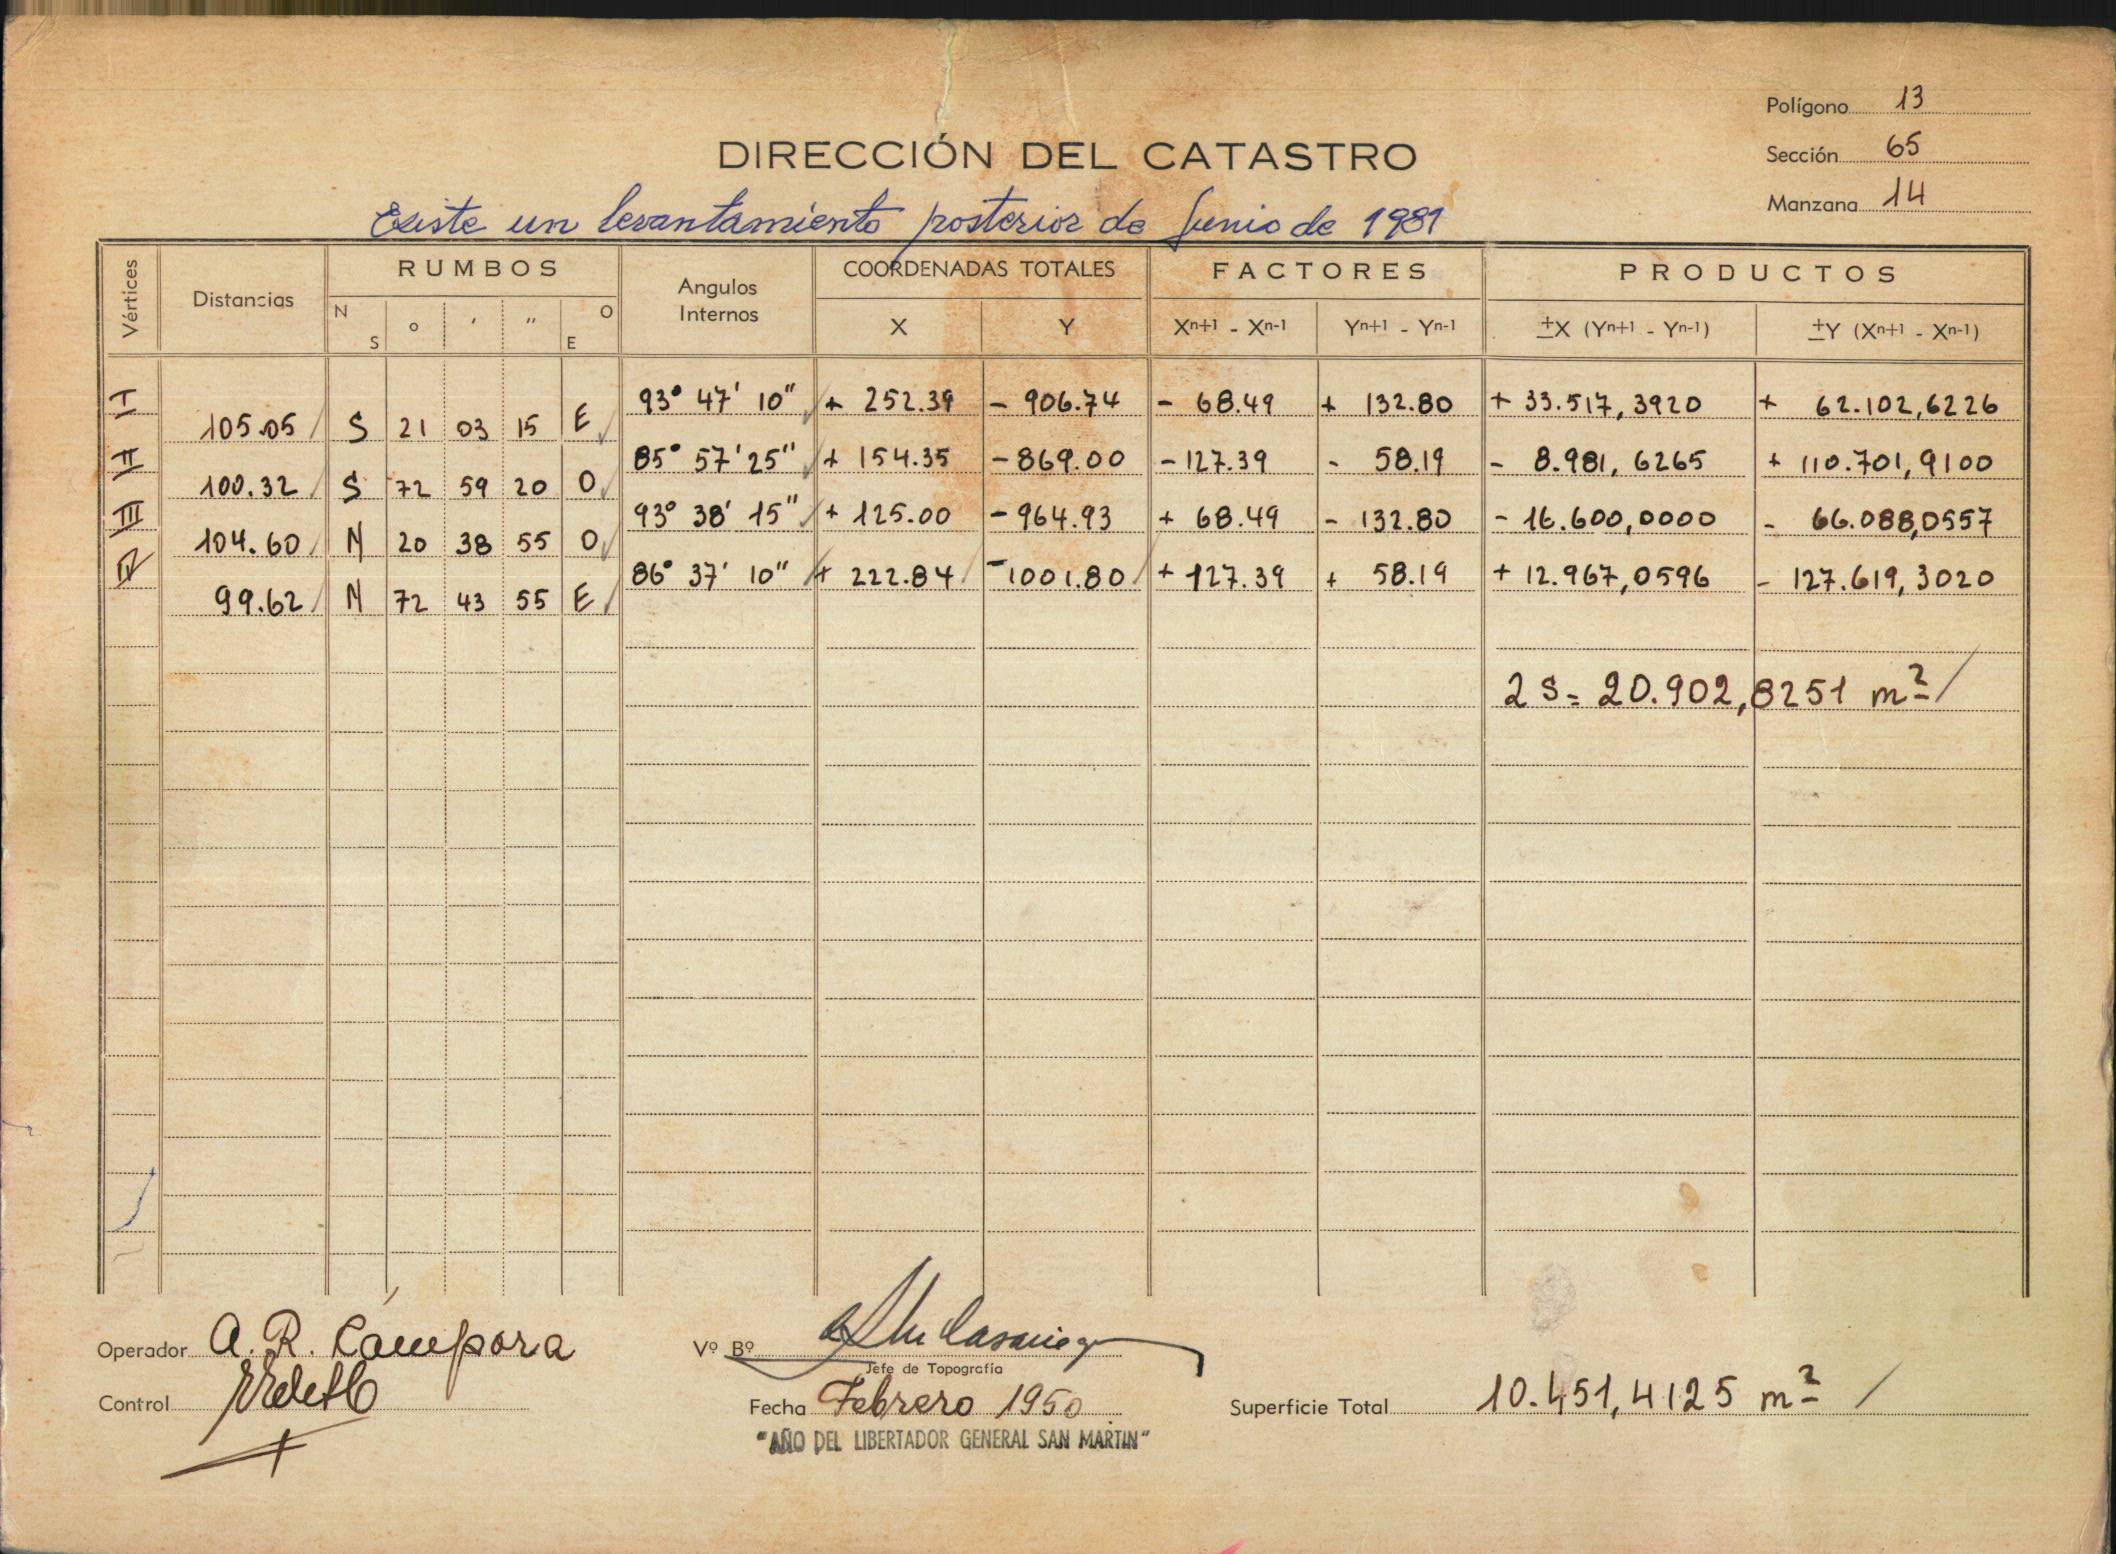 Polígono 13
DIRECCIÓN DEL CATASTRO
Sección 65
Manzana 14
Existe un levantamiento posterior de Junio de 1981
Vértices Distancias RUMBOS Angulos Internos COORDENADAS TOTALES FACTORES PRODUCTOS
N S o ′ ″ O E X Y Xn+1 - Xn-1 Yn+1 - Yn-1 ±X (Yn+1 - Yn-1) ±Y (Xn+1 - Xn-1)
I 93° 47' 10" + 252.39 - 906.74 - 68.49 + 132.80 + 33.517,3920 + 62.102,6226
105.05 S 21 03 15 E
II 85° 57' 25" + 154.35 - 869.00 - 127.39 - 58.19 - 8.981,6265 + 110.701,9100
100.32 S 72 59 20 O
III 93° 38' 15" + 125.00 - 964.93 + 68.49 - 132.80 - 16.600,0000 - 66.088,0557
104.60 N 20 38 55 O
IV 86° 37' 10" + 222.84 - 1001.80 + 127.39 + 58.19 + 12.967,0596 - 127.619,3020
99.62 N 72 43 55 E
2 S = 20.902,8251 m²
Operador A. R. Cámpora Vº Bº
Jefe de Topografía
Control Fecha Febrero 1950 Superficie Total 10.451,4125 m²
"AÑO DEL LIBERTADOR GENERAL SAN MARTIN"